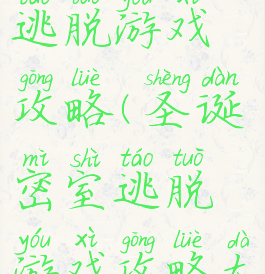 táo tuō yóu xì
逃脱游戏
gōng lüè shèng dàn
攻略(圣诞
mì shì táo tuō
密室逃脱
yóu xì gōng lüè dà
游戏攻略大